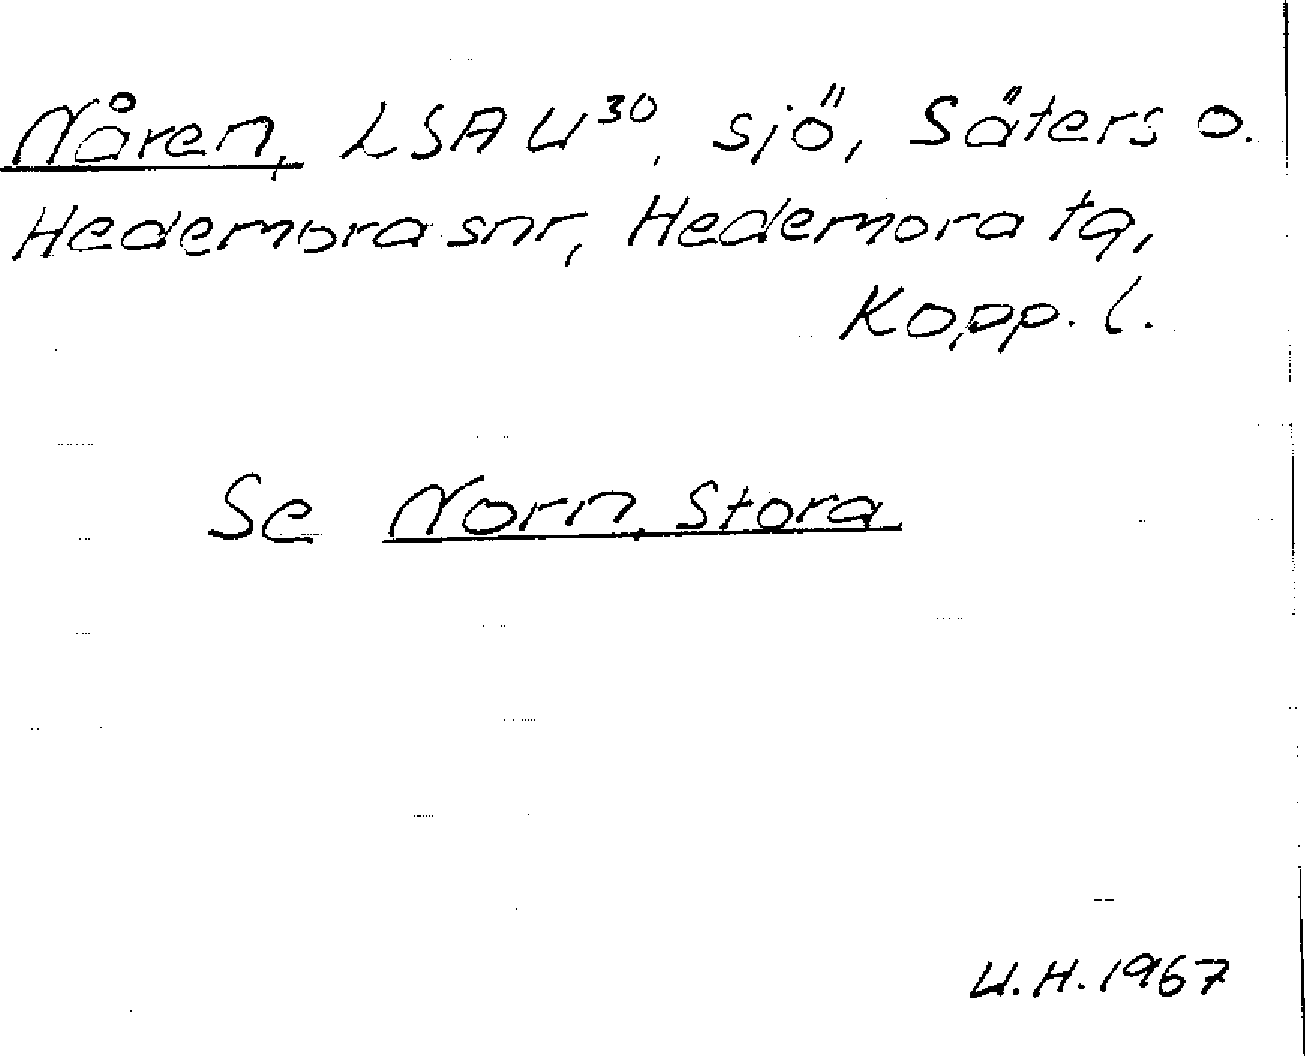 Nåren, LSA U30, sjö, Säters o.
Hedemora snr, Hedemora tg,
Kopp. l.
Se Norn, Stora
U.H. 1967